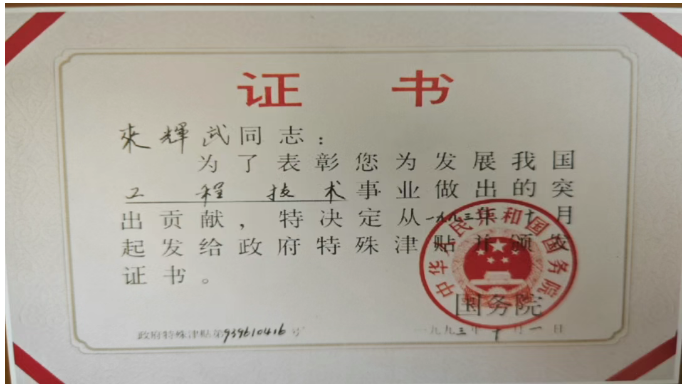 证 书
来辉武同志：
为了表彰您为发展我国
工程技术事业做出的突
出贡献，特决定从一九九三年十月
起发给政府特殊津贴并颁发
证书。
中华人民共和国国务院
国务院
政府特殊津贴第939610416号
一九九三年十月一日